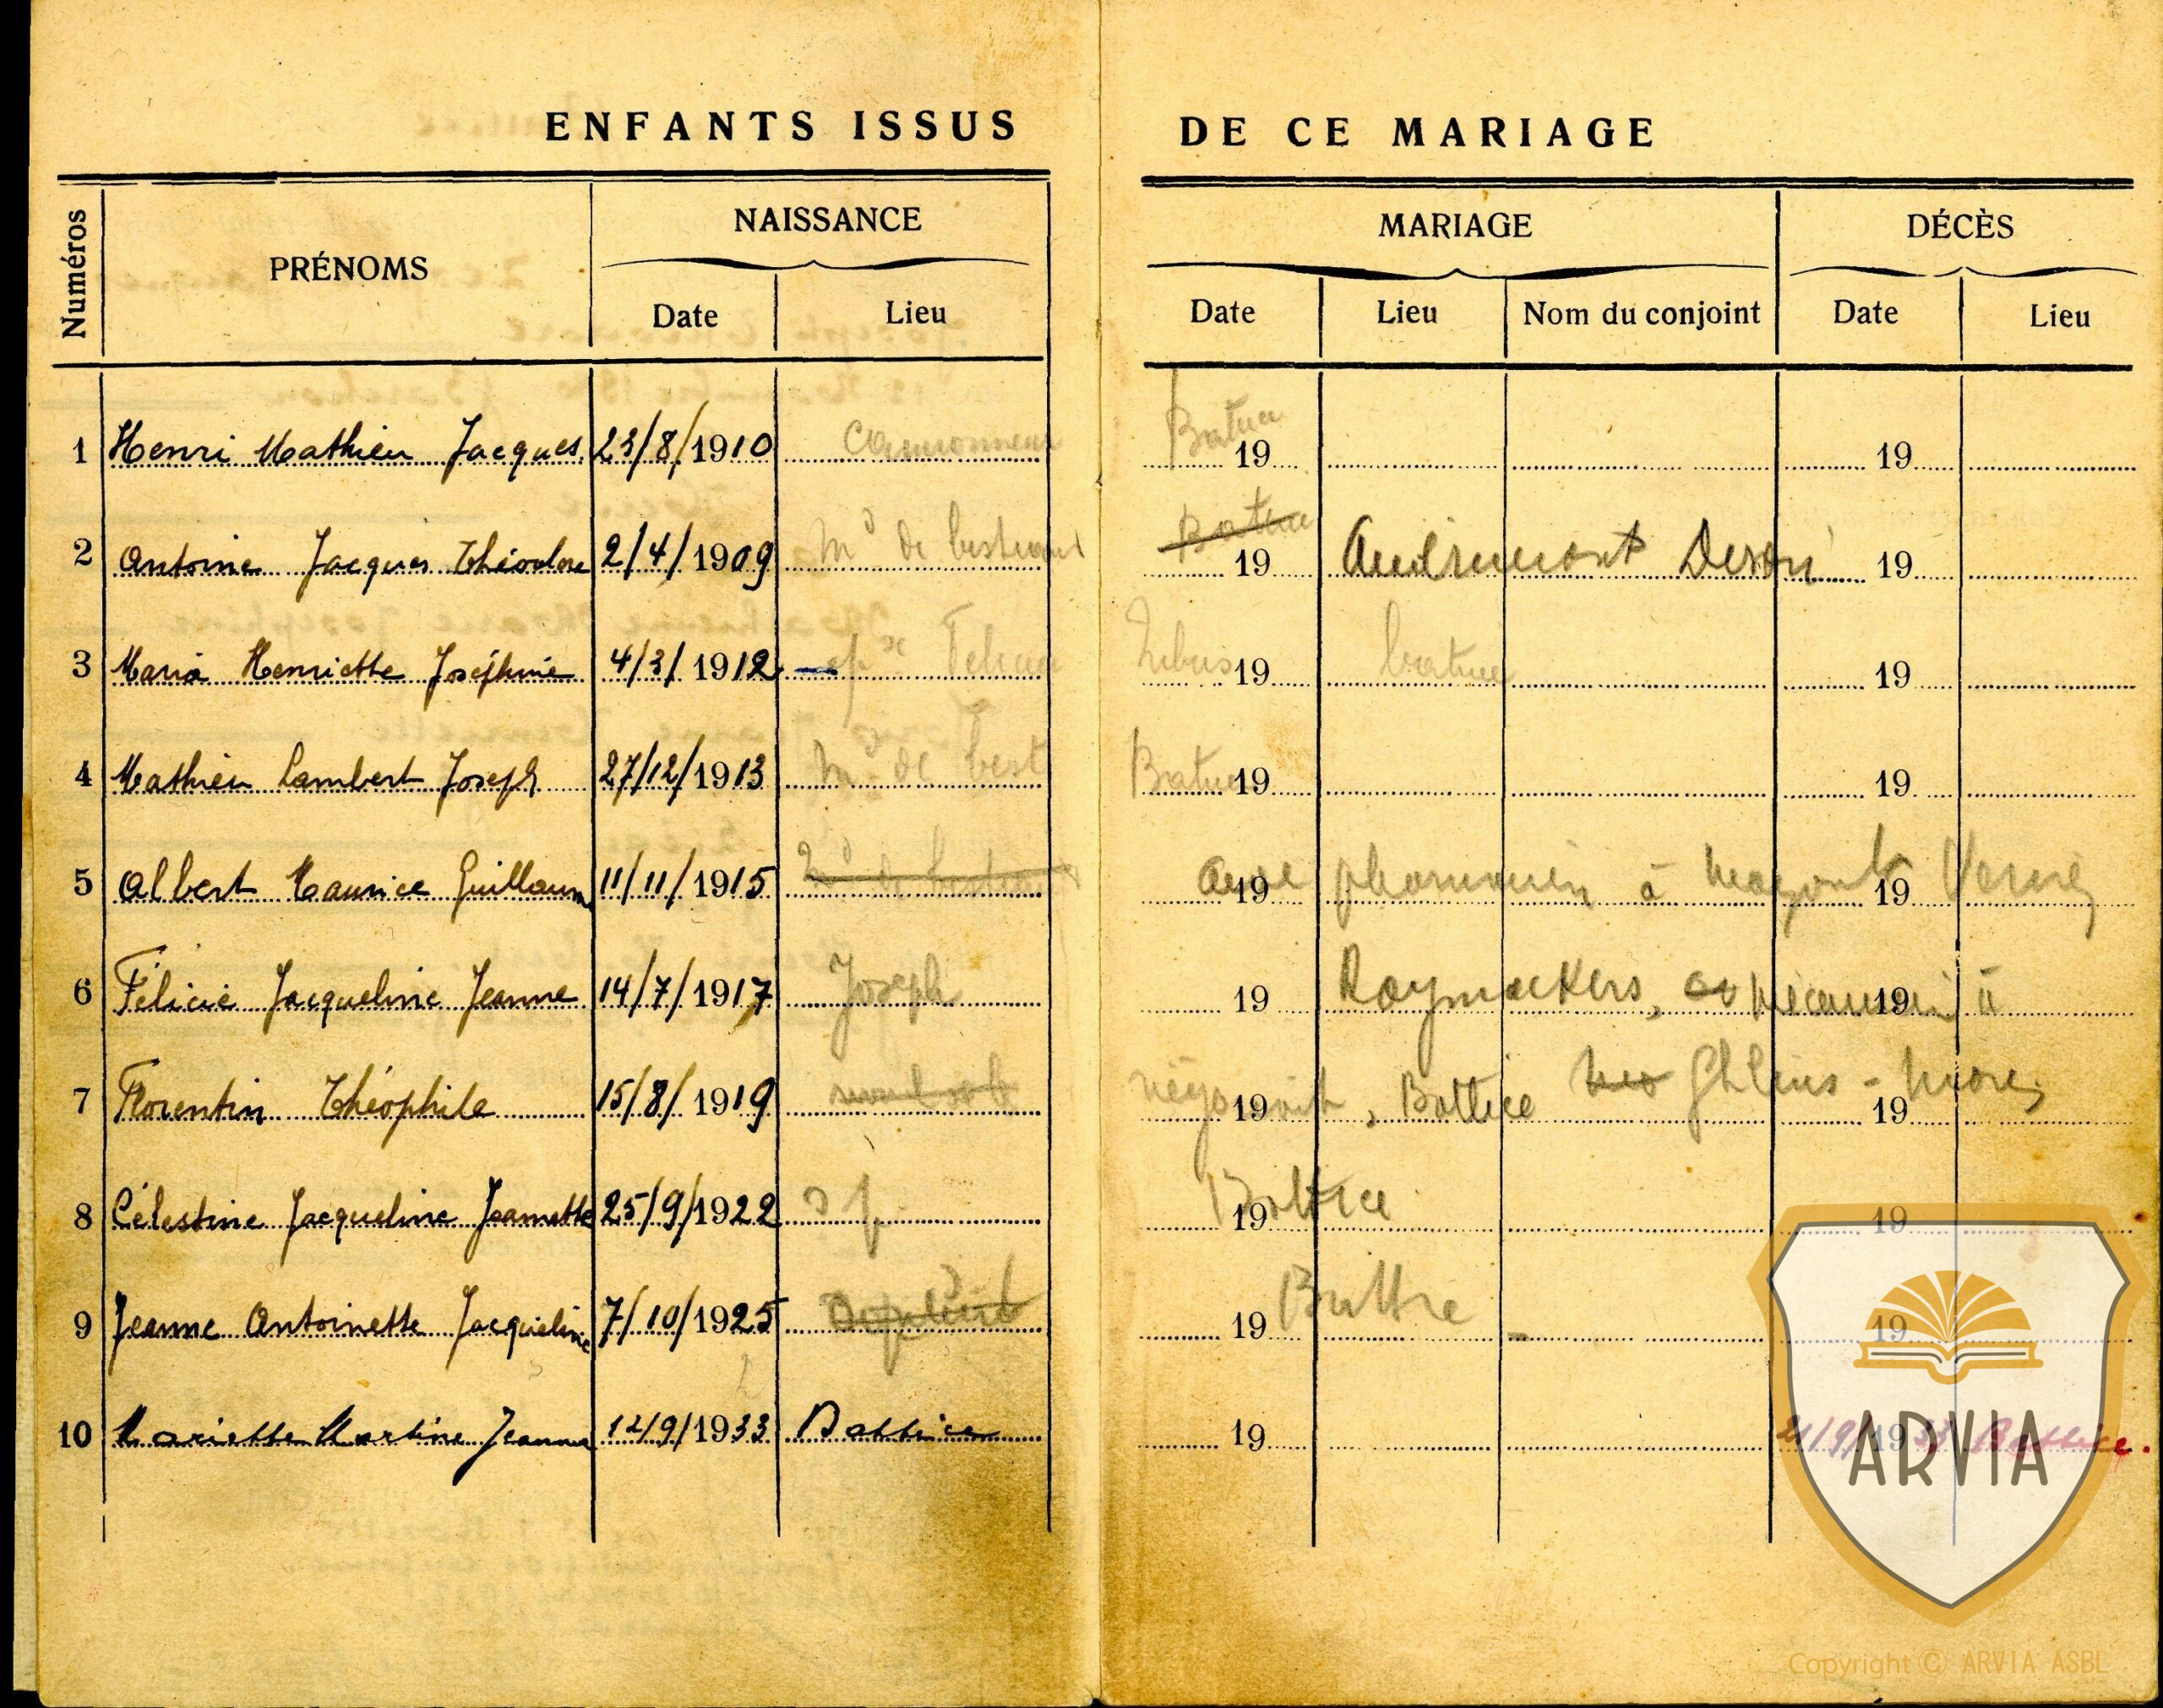 ENFANTS ISSUS DE CE MARIAGE
Numéros PRÉNOMS NAISSANCE MARIAGE DÉCÈS
Date Lieu Date Lieu Nom du conjoint Date Lieu
1 Henri Mathieu Jacques 23/8/1910 Camionneur Battice 19 19
2 Antoine Jacques Théodore 2/4/1909 Md de bestiaux Battice 19 Andrimont 19
3 Maria Henriette Joséphine 4/3/1912 19 battice 19
4 Mathieu Lambert Joseph 27/12/1913 Md de best Battice 19 19
5 Albert Maurice Guillaume 11/11/1915 19 pharmacien à 19
6 Félicie Jacqueline Jeanne 14/7/1917 Joseph 19 Raymackers, 19
7 Florentin Théophile 15/8/1919 négociant, 19 Battice 19
8 Célestine Jacqueline Jeannette 25/9/1922 s f. Battice 19 19
9 Jeanne Antoinette Jacqueline 7/10/1925 19 19
10 Mariette Martine Jeanne 12/9/1933 Battice 19 21/9/1933 Battice.
ARVIA
Copyright © ARVIA ASBL